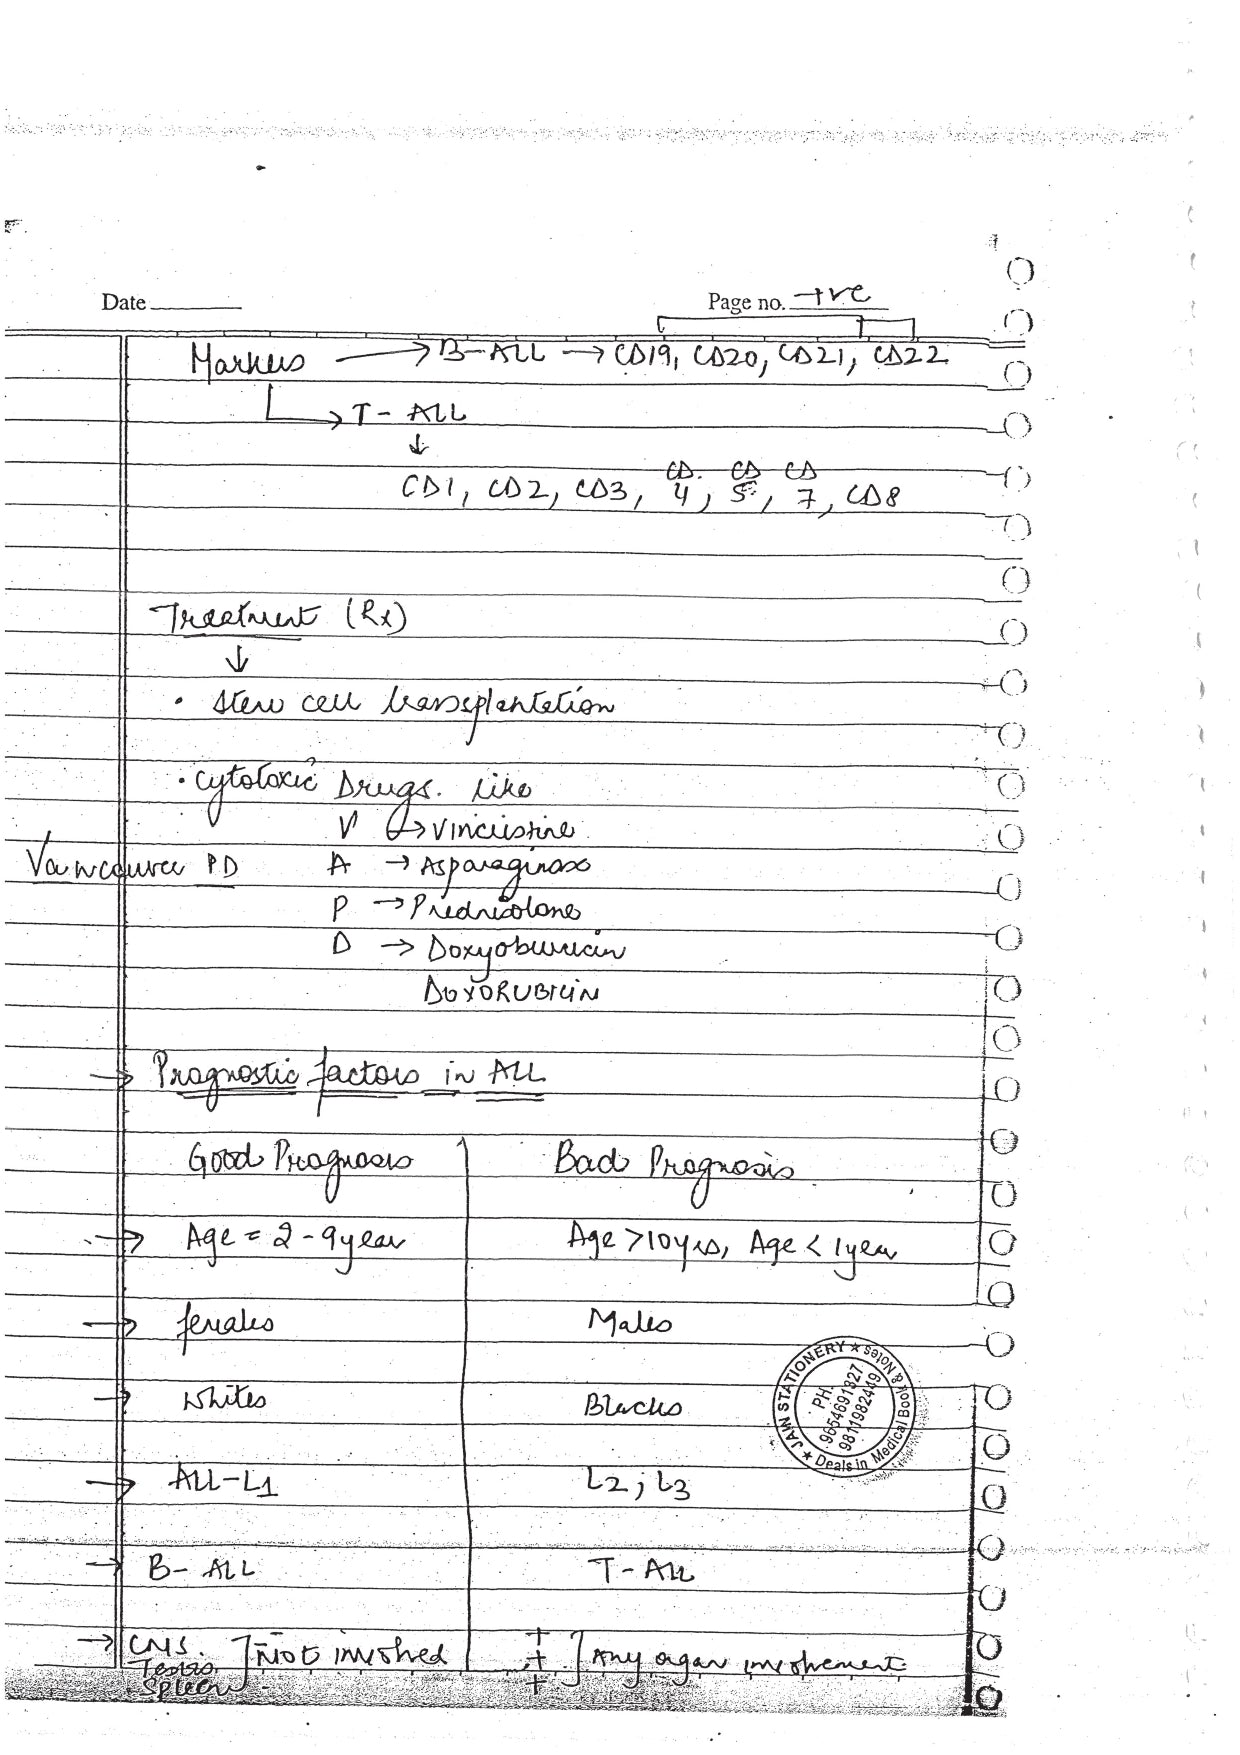 Date
Page no. +ve
Markers → B-ALL → CD19, CD20, CD21, CD22
→ T- ALL
↓
CD1, CD2, CD3, CD 4, CD 5, CD 7, CD8
Treatment (Rx)
↓
• Stem cell transplantation
• Cytotoxic Drugs. like
V → Vincristine
Vancouver PD A → Asparaginase
P → Prednisolone
D → Doxyoburicin
DOXORUBICIN
→ Prognostic factors in ALL
Good Prognosis Bad Prognosis
→ Age = 2 - 9 year Age >10 yrs, Age < 1 year
→ females Males
→ Whites Blacks
JAIN STATIONERY ★ Book & Notes
PH.
9654691327
9811982449
★ Deals in Medical
→ ALL-L1 L2, L3
→ B- ALL T-ALL
→ CNS. ] Not involved + ] Any organ involvement
Testis +
Spleen +